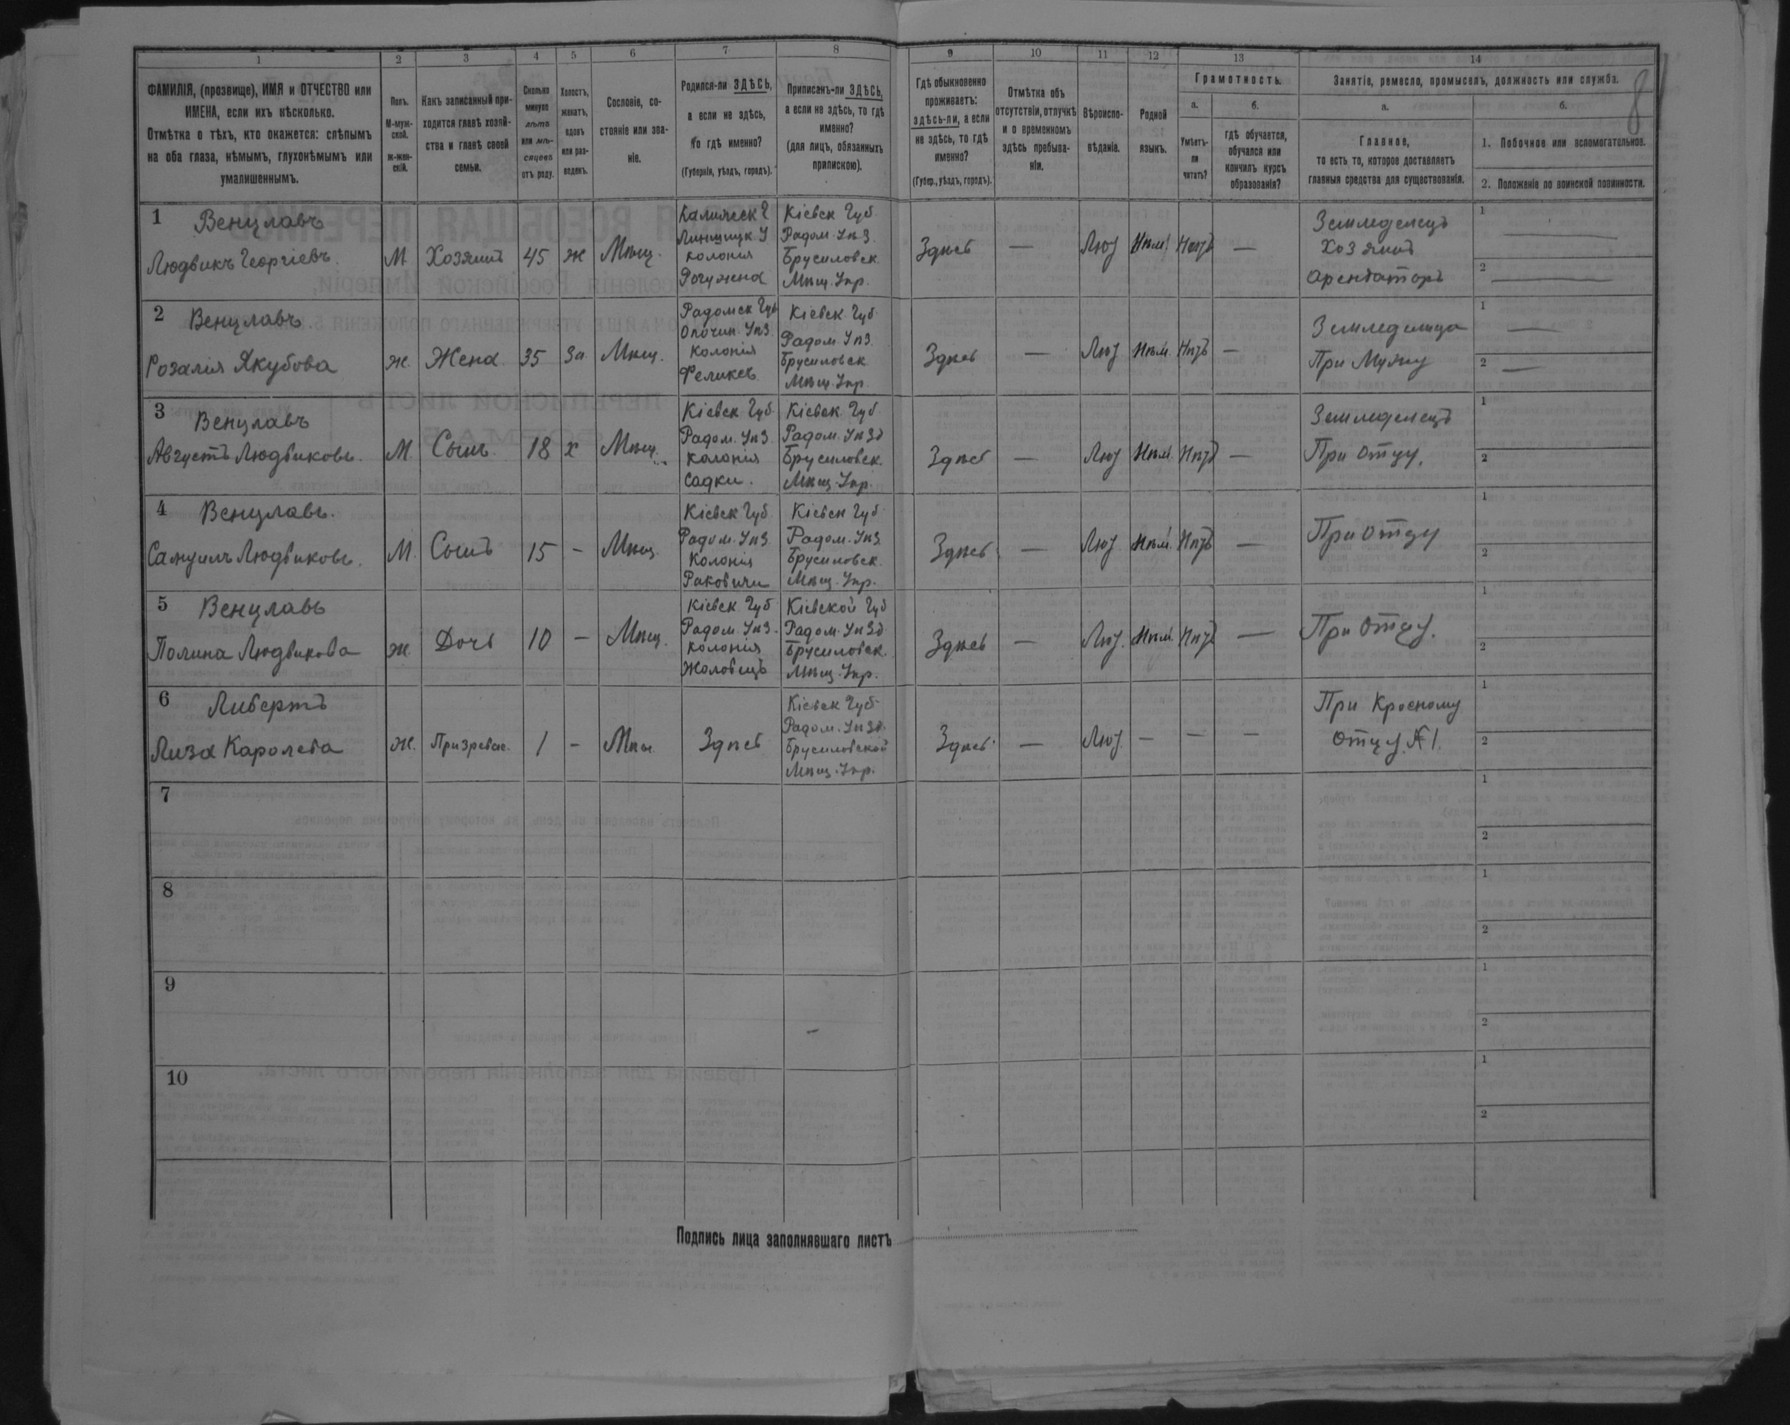 1 2 3 4 5 6 7 8 9 10 11 12 13 14
ФАМИЛІЯ, (прозвище), ИМЯ и ОТЧЕСТВО или
ИМЕНА, если ихъ нѣсколько.
Отмѣтка о тѣхъ, кто окажется: слѣпымъ
на оба глаза, нѣмымъ, глухонѣмымъ или
умалишеннымъ.
Полъ.
М-муж-
ской.
ж-жен-
скій.
Какъ записанный при-
ходится главѣ хозяй-
ства и главѣ своей
семьи.
Сколько
минуло
лѣтъ
или мѣ-
сяцевъ
отъ роду.
Холостъ,
женатъ,
вдовъ
или раз-
веденъ.
Сословіе, со-
стояніе или зва-
ніе.
Родился-ли ЗДѢСЬ,
а если не здѣсь,
то гдѣ именно?
(Губернія, уѣздъ, городъ).
Приписанъ-ли ЗДѢСЬ,
а если не здѣсь, то гдѣ
именно?
(для лицъ, обязанныхъ
припискою).
Гдѣ обыкновенно
проживаетъ:
здѣсь-ли, а если
не здѣсь, то гдѣ
именно?
(Губер., уѣздъ, городъ).
Отмѣтка объ
отсутствіи, отлучкѣ
и о временномъ
здѣсь пребыва-
ніи.
Вѣроиспо-
вѣданіе.
Родной
языкъ.
Грамотность.
а.
Умѣетъ-
ли
читать?
б.
гдѣ обучается,
обучался или
кончилъ курсъ
образованія?
Занятіе, ремесло, промыселъ, должность или служба.
а.
Главное,
то есть то, которое доставляетъ
главныя средства для существованія.
б.
1. Побочное или вспомогательное.
2. Положеніе по воинской повинности.
8
1 Венцлавъ
Людвикъ Георгіевъ
М
Хозяинъ
45
ж
Мѣщ.
колонія
Кіевск Губ.
Радом. Уѣз.
Брусиловск
Мѣщ. Упр.
Здѣсь
—
Лют
Нѣм.
Нѣтъ
—
Земледелецъ
Хозяинъ
арендаторъ
1 —
2 —
2 Венцлавъ
Розалія Якубова
ж.
Жена.
35
За
Мѣщ.
Радомск Губ
Опочин. Уѣз.
Колонія
Феликсъ
Кіевск Губ
Радом Уѣз.
Брусиловск
Мѣщ. Упр.
Здѣсь
—
Лют
Нѣм.
Нѣтъ
—
При Мужу
1 —
2 —
3 Венцлавъ
Августъ Людвиковъ.
М
Сынъ.
18
х
Мѣщ.
Кіевск Губ
Радом. Уѣз.
колонія
Садки.
Кіевск Губ
Радом. Уѣзд
Брусиловск.
Мѣщ. Упр.
Здѣсь
—
Лют
Нѣм.
Нѣтъ
—
Земледелецъ
При отцу.
1
2
4 Венцлавъ.
Самуилъ Людвиковъ.
М.
Сынъ
15
–
Мѣщ.
Кіевск Губ
Радом. Уѣз.
Колонія
Раковичи
Кіевск Губ
Радом. Уѣз.
Брусиловск.
Мѣщ. Упр.
Здѣсь
—
Лют
Нѣм.
Нѣтъ
—
При отцу
1
2
5 Венцлавъ
Полина Людвикова
ж.
Дочь
10
–
Мѣщ.
Кіевск Губ
Радом. Уѣз.
колонія
Жоловецъ
Кіевской Губ
Радом. Уѣзд
Брусиловск.
Мѣщ. Упр.
Здѣсь
—
Лют.
Нѣм.
Нѣтъ
—
При отцу.
1
2
6 Либертъ
Лиза Каролева
ж.
1
–
Мѣщ.
Здѣсь
Кіевск Губ
Радом. Уѣзд.
Брусиловской
Мѣщ. Упр.
Здѣсь
—
Лют
—
—
—
При Кросному
Отцу №1.
1
2
7
1
2
8
1
2
9
1
2
10
1
2
Подпись лица заполнявшаго листъ